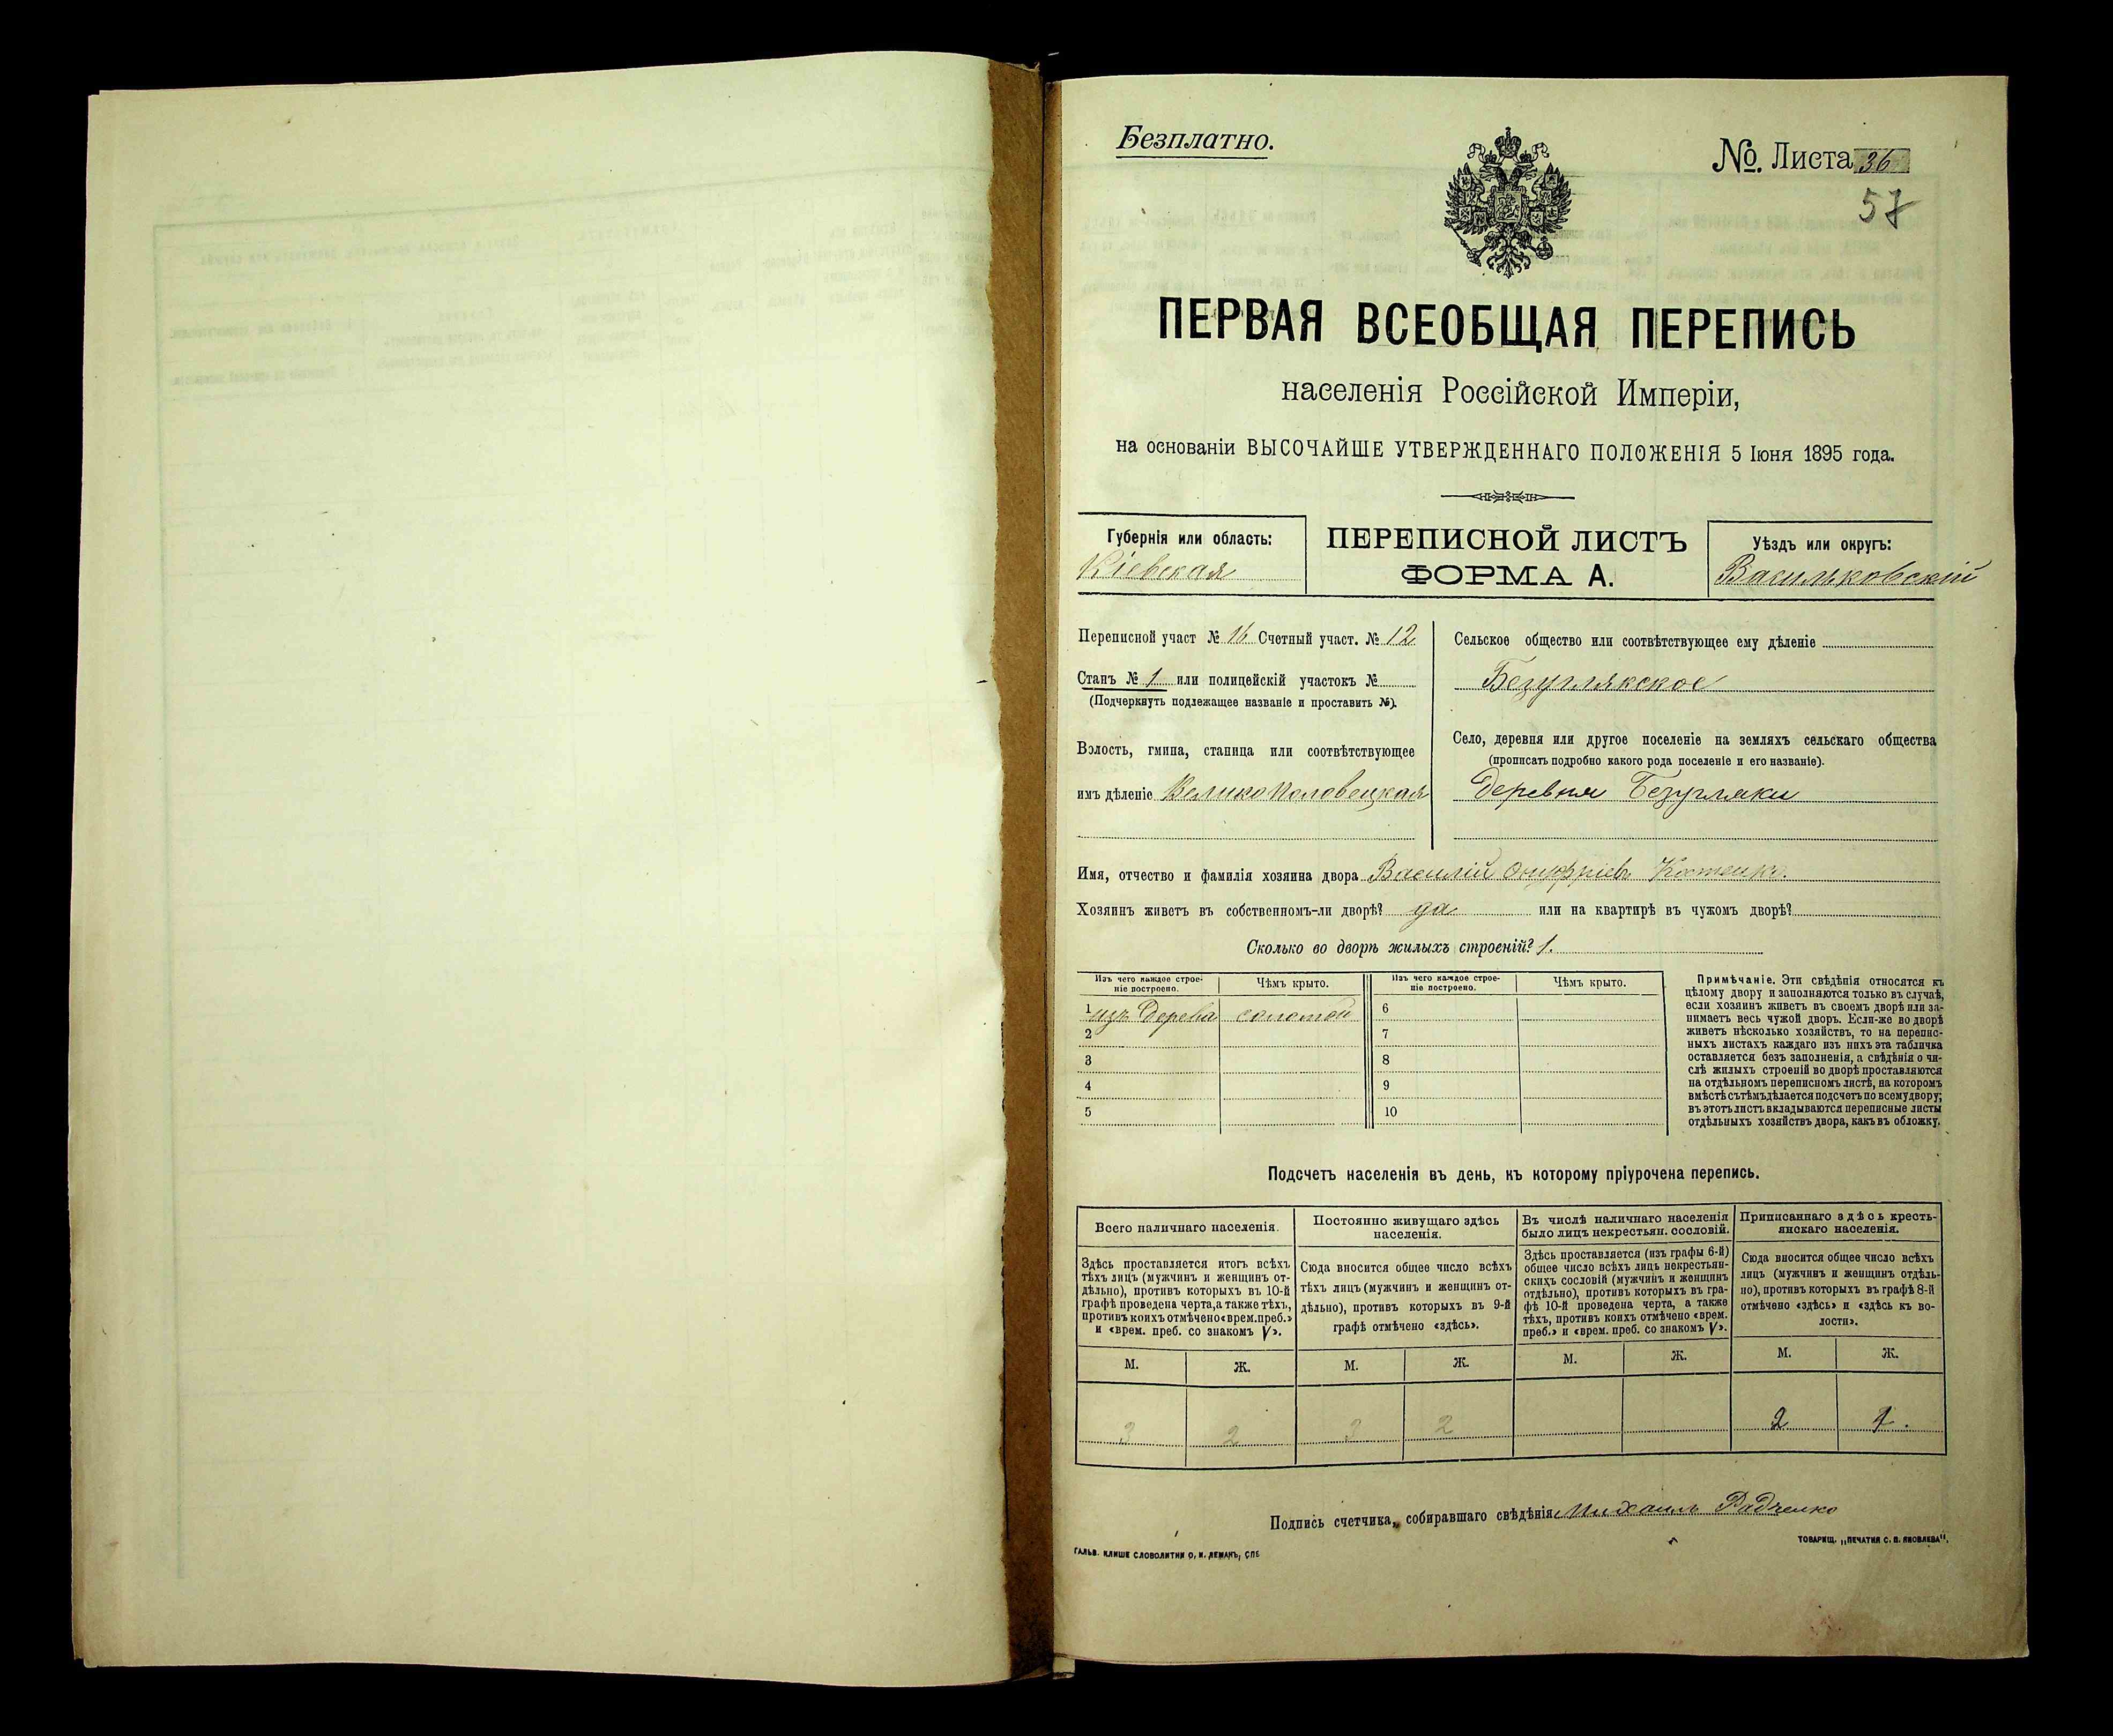 Безплатно.
№. Листа 36
57
ПЕРВАЯ ВСЕОБЩАЯ ПЕРЕПИСЬ
населенія Россійской Имперіи,
на основаніи ВЫСОЧАЙШЕ УТВЕРЖДЕННАГО ПОЛОЖЕНІЯ 5 Іюня 1895 года.
Губернія или область:
Кіевская
ПЕРЕПИСНОЙ ЛИСТЪ
ФОРМА А.
Уѣздъ или округъ:
Васильковскій
Переписной участ № 16 Счетный участ. № 12
Станъ № 1 или полицейскій участокъ №
(Подчеркнуть подлежащее названіе и проставить №).
Волость, гмина, станица или соотвѣтствующее
имъ дѣленіе Великополовецкая
Сельское общество или соотвѣтствующее ему дѣленіе
Безуглякское
Село, деревня или другое поселеніе на земляхъ сельскаго общества
(прописать подробно какого рода поселеніе и его названіе).
деревня Безугляки
Имя, отчество и фамилія хозяина двора Василій Онуфріевъ Костенко.
Хозяинъ живетъ въ собственномъ-ли дворѣ? да или на квартирѣ въ чужомъ дворѣ?
Сколько во дворѣ жилыхъ строеній? 1.
Изъ чего каждое строе-
ніе построено.
Чѣмъ крыто.
Изъ чего каждое строе-
ніе построено.
Чѣмъ крыто.
1 изъ дерева соломой 6
2 7
3 8
4 9
5 10
Примѣчаніе. Эти свѣдѣнія относятся къ
цѣлому двору и заполняются только въ случаѣ,
если хозяинъ живетъ въ своемъ дворѣ или за-
нимаетъ весь чужой дворъ. Если-же во дворѣ
живетъ нѣсколько хозяйствъ, то на перепис-
ныхъ листахъ каждаго изъ нихъ эта табличка
оставляется безъ заполненія, а свѣдѣнія о чи-
слѣ жилыхъ строеній во дворѣ проставляются
на отдѣльномъ переписномъ листѣ, на которомъ
вмѣстѣ съ тѣмъ дѣлается подсчетъ по всему двору;
въ этотъ листъ вкладываются переписные листы
отдѣльныхъ хозяйствъ двора, какъ въ обложку.
Подсчетъ населенія въ день, къ которому пріурочена перепись.
Всего наличнаго населенія.
Здѣсь проставляется итогъ всѣхъ
тѣхъ лицъ (мужчинъ и женщинъ от-
дѣльно), противъ которыхъ въ 10-й
графѣ проведена черта, а также тѣхъ,
противъ коихъ отмѣчено «врем. преб.»
и «врем. преб. со знакомъ V».
Постоянно живущаго здѣсь
населенія.
Сюда вносится общее число всѣхъ
тѣхъ лицъ (мужчинъ и женщинъ от-
дѣльно), противъ которыхъ въ 9-й
графѣ отмѣчено «здѣсь».
Въ числѣ наличнаго населенія
было лицъ некрестьян. сословій.
Здѣсь проставляется (изъ графы 6-й)
общее число всѣхъ лицъ некрестьян-
скихъ сословій (мужчинъ и женщинъ
отдѣльно), противъ которыхъ въ гра-
фѣ 10-й проведена черта, а также
тѣхъ, противъ коихъ отмѣчено «врем.
преб.» и «врем. преб. со знакомъ V».
Приписаннаго здѣсь кресть-
янскаго населенія.
Сюда вносится общее число всѣхъ
лицъ (мужчинъ и женщинъ отдѣль-
но), противъ которыхъ въ графѣ 8-й
отмѣчено «здѣсь» и «здѣсь къ во-
лости».
М. Ж. М. Ж. М. Ж. М. Ж.
3 2 3 2 2 1.
Подпись счетчика, собиравшаго свѣдѣнія Михаилъ Радченко
ГАЛЬВ. КЛИШЕ СЛОВОЛИТНИ О. И. ЛЕМАНЪ, СПБ
ТОВАРИЩ. „ПЕЧАТНЯ С. П. ЯКОВЛЕВА“.